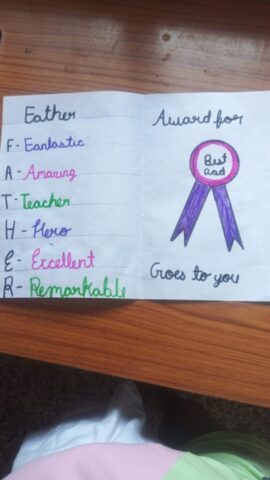 Father
F - Fantastic
A - Amazing
T - Teacher
H - Hero
E - Excellent
R - Remarkable
Award for
Best
Dad
Goes to you